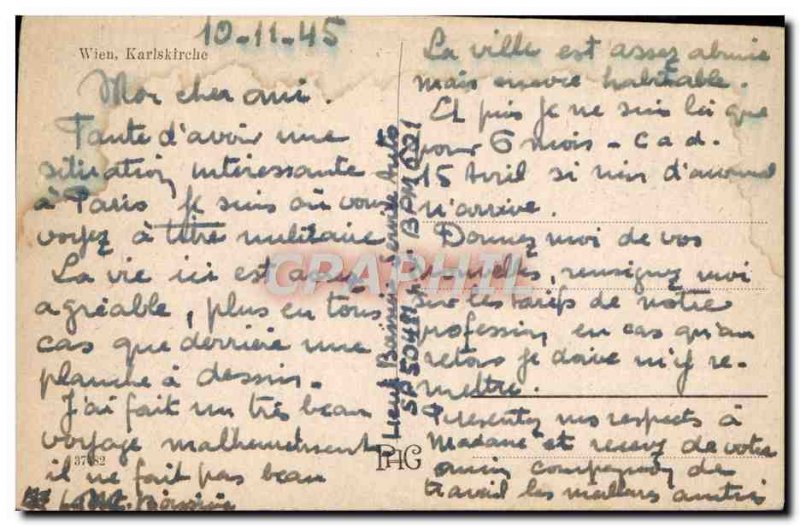 10-11-45
Wien, Karlskirche
Mon cher ami.
Faute d'avoir une
situation intéressante
à Paris je suis où vous
voyez à titre militaire
La vie ici est assez
agréable, plus en tous
cas que derrière une
planche à dessin.
J'ai fait un très beau
voyage malheureusement
il ne fait pas beau
37482
La ville est assez abimée
mais encore habitable.
Et puis je ne suis ici que
pour 6 mois - c a d.
15 Avril si rien d'anormal
n'arrive.
Donnez moi de vos
nouvelles, renseignez moi
sur les tarifs de notre
profession en cas qu'au
retour je doive m'y re-
mettre.
Présentez mes respects à
Madame et recevez de votre
ancien compagnon de
travail les meilleures amitiés
Lieut Service Auto
SP 50481 BPM 601
PHG
CPAPHIL